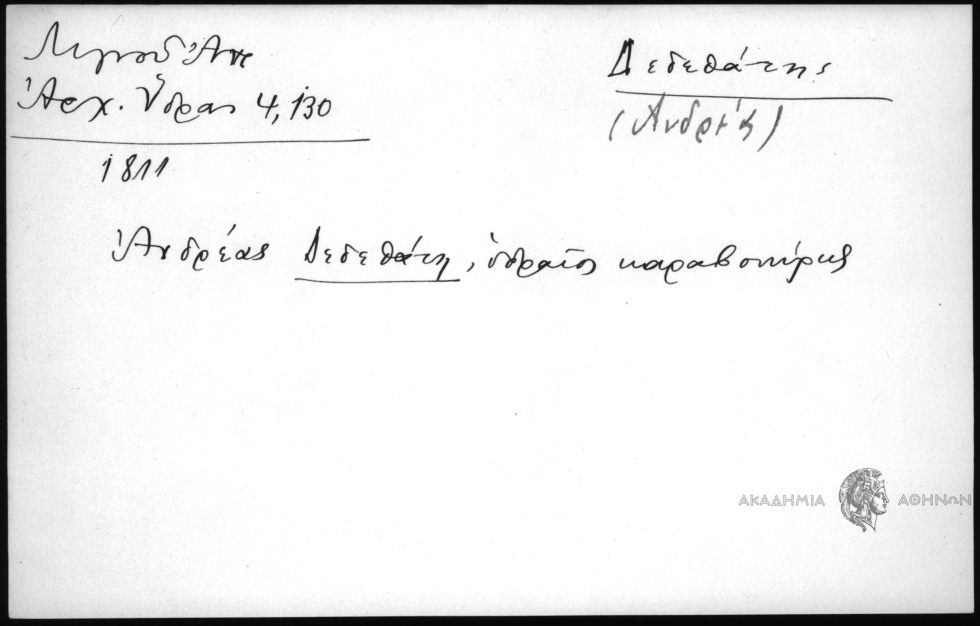 Λιγνού Ἀντ
Ἀρχ. Ὕδρας 4, 130
1811
Δεδεθάτης
(Ἀνδρέας)
Ἀνδρέας Δεδεθάτη, ὑδραῖος καραβοκύρης
ΑΚΑΔΗΜΙΑ ΑΘΗΝΩΝ